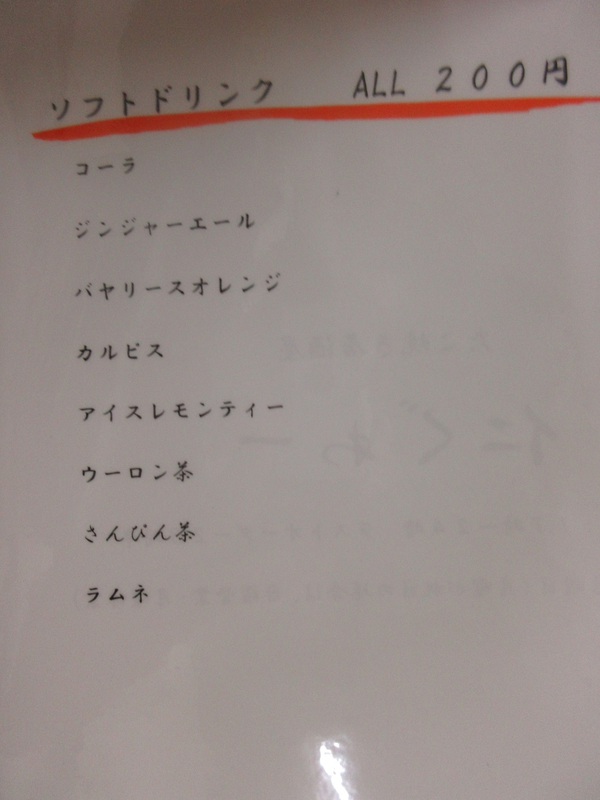 ソフトドリンク ALL 200円
コーラ
ジンジャーエール
バヤリースオレンジ
カルピス
アイスレモンティー
ウーロン茶
さんぴん茶
ラムネ